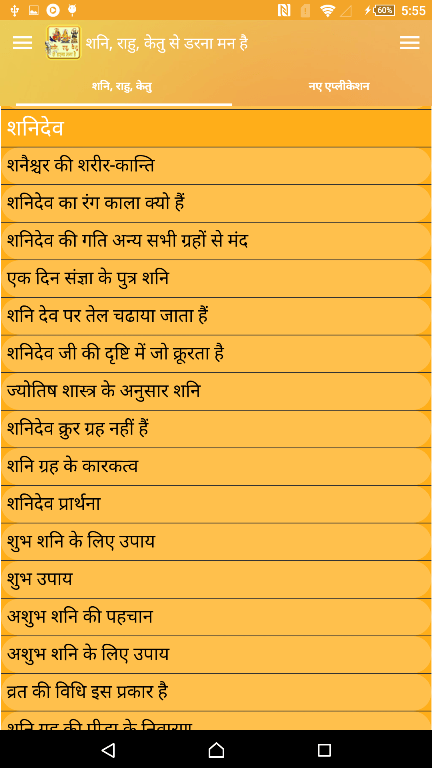 60%
5:55
शनि, राहु, केतु से डरना मन है
शनि, राहु, केतु
नए एप्लीकेशन
शनिदेव
शनैश्चर की शरीर-कान्ति
शनिदेव का रंग काला क्यो हैं
शनिदेव की गति अन्य सभी ग्रहों से मंद
एक दिन संज्ञा के पुत्र शनि
शनि देव पर तेल चढाया जाता हैं
शनिदेव जी की दृष्टि में जो क्रूरता है
ज्योतिष शास्त्र के अनुसार शनि
शनिदेव क्रुर ग्रह नहीं हैं
शनि ग्रह के कारकत्व
शनिदेव प्रार्थना
शुभ शनि के लिए उपाय
शुभ उपाय
अशुभ शनि की पहचान
अशुभ शनि के लिए उपाय
व्रत की विधि इस प्रकार है
शनि ग्रह की पीड़ा के निवारण